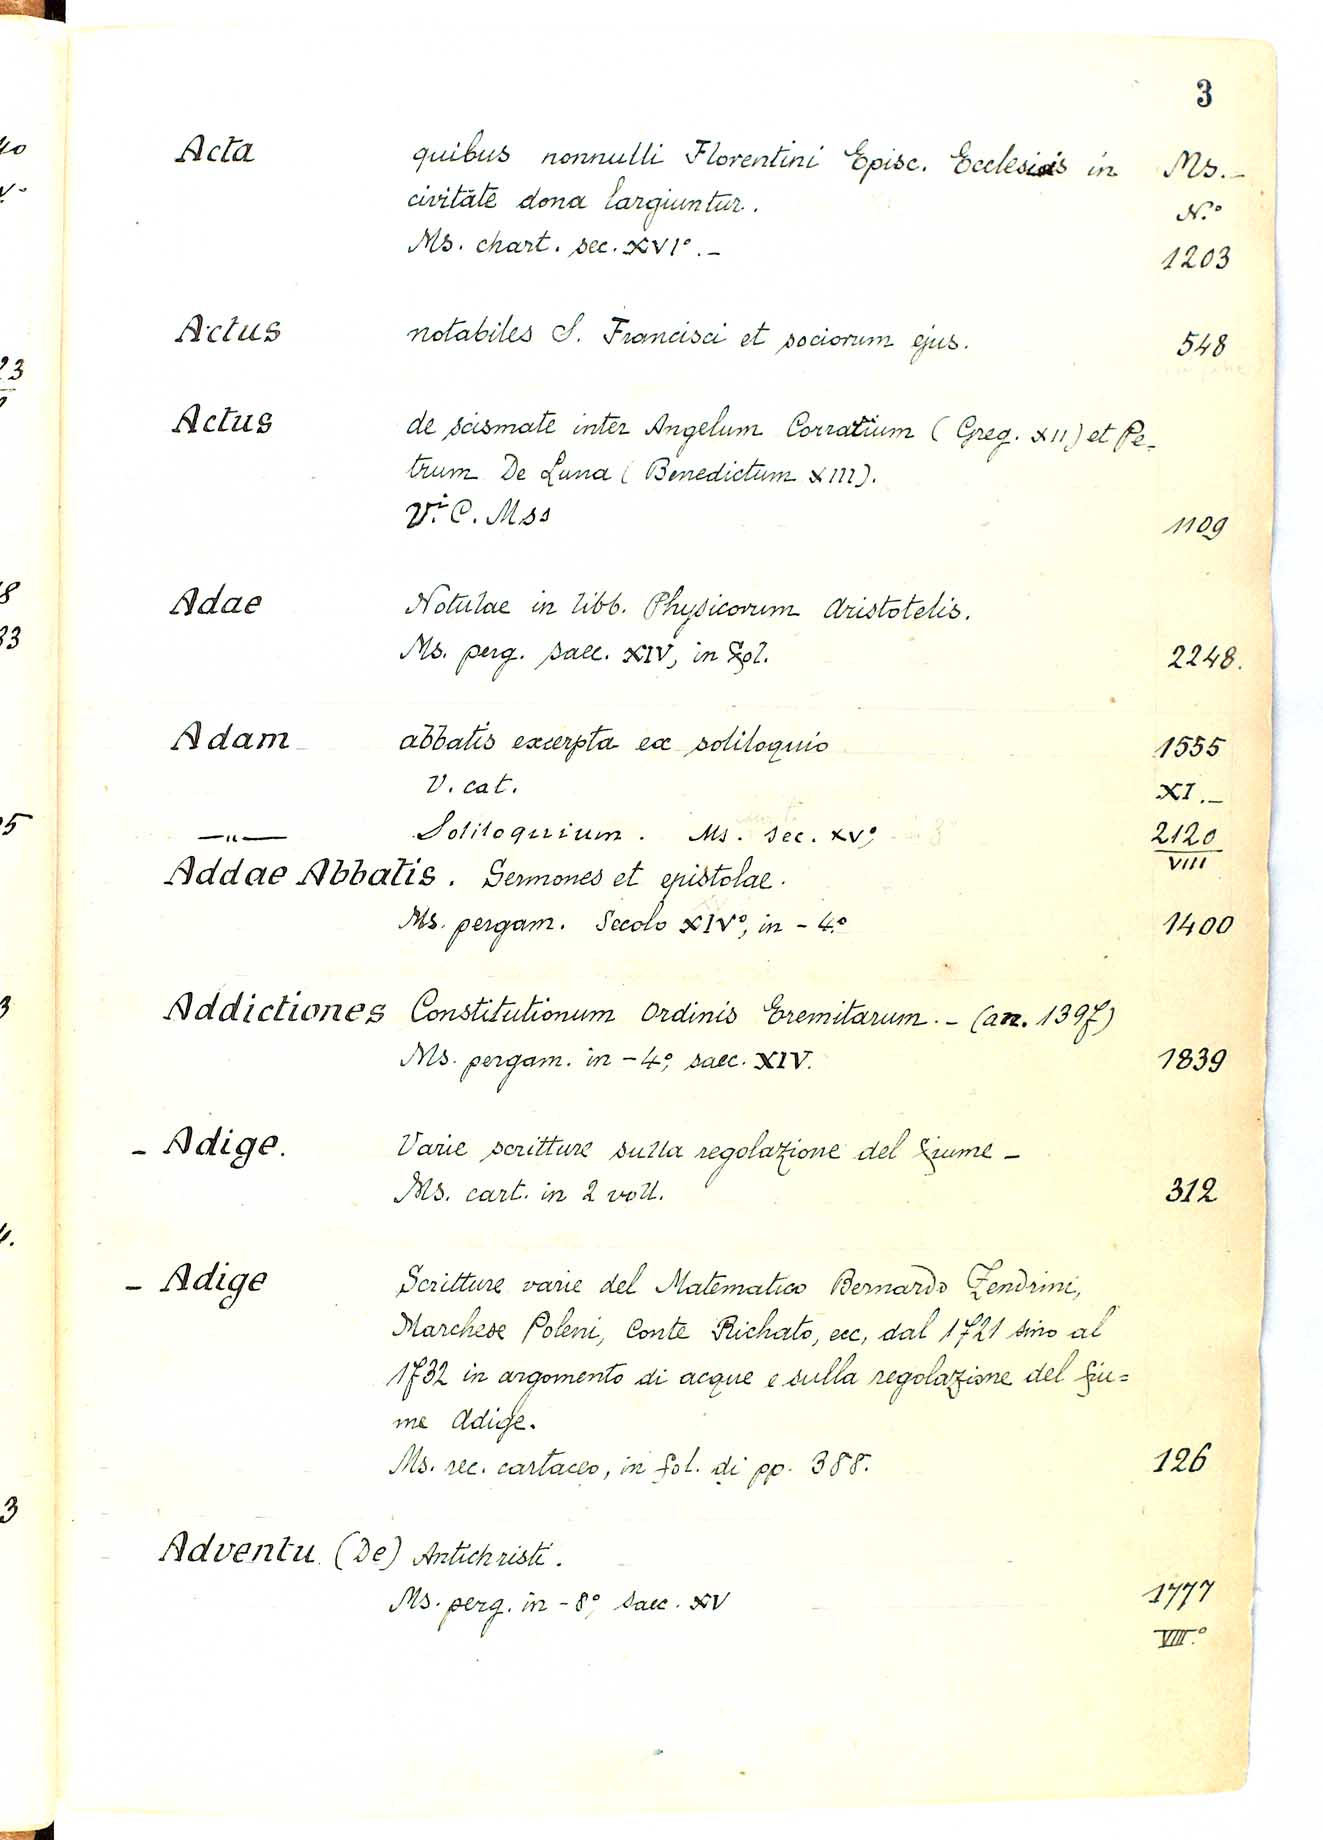 3
Acta quibus nonnulli Florentini Episc. Ecclesiis in Ms.-
civitate dona largiuntur. N.°
Ms. chart. sec. XVI°.- 1203
Actus notabiles S. Francisci et sociorum ejus. 548
Actus de scismate inter Angelum Corrarium (Greg. XII) et Pe-
trum De Luna (Benedictum XIII).
V.i C. Mss 1109
Adae Notulae in libb. Physicorum Aristotelis.
Ms. perg. saec. XIV, in fol. 2248.
Adam abbatis excerpta ex soliloquio 1555
V. cat. XI.-
—"— Soliloquium. Ms. sec. XV°, 2120
VIII
Addae Abbatis. Sermones et epistolae.
Ms. pergam. Secolo XIV°, in-4.° 1400
Addictiones Constitutionum Ordinis Eremitarum.- (an. 1397)
Ms. pergam. in-4°, saec. XIV. 1839
- Adige. Varie scritture sulla regolazione del fiume-
Ms. cart. in 2 voll. 312
- Adige Scritture varie del Matematico Bernardo Zendrini,
Marchese Poleni, Conte Richato, ecc, dal 1721 sino al
1732 in argomento di acque e sulla regolazione del fiu=
me Adige.
Ms. rec. cartaceo, in fol. di pp. 388. 126
Adventu (De) Antichristi.
Ms. perg. in-8°, saec. XV 1777
VIII.°